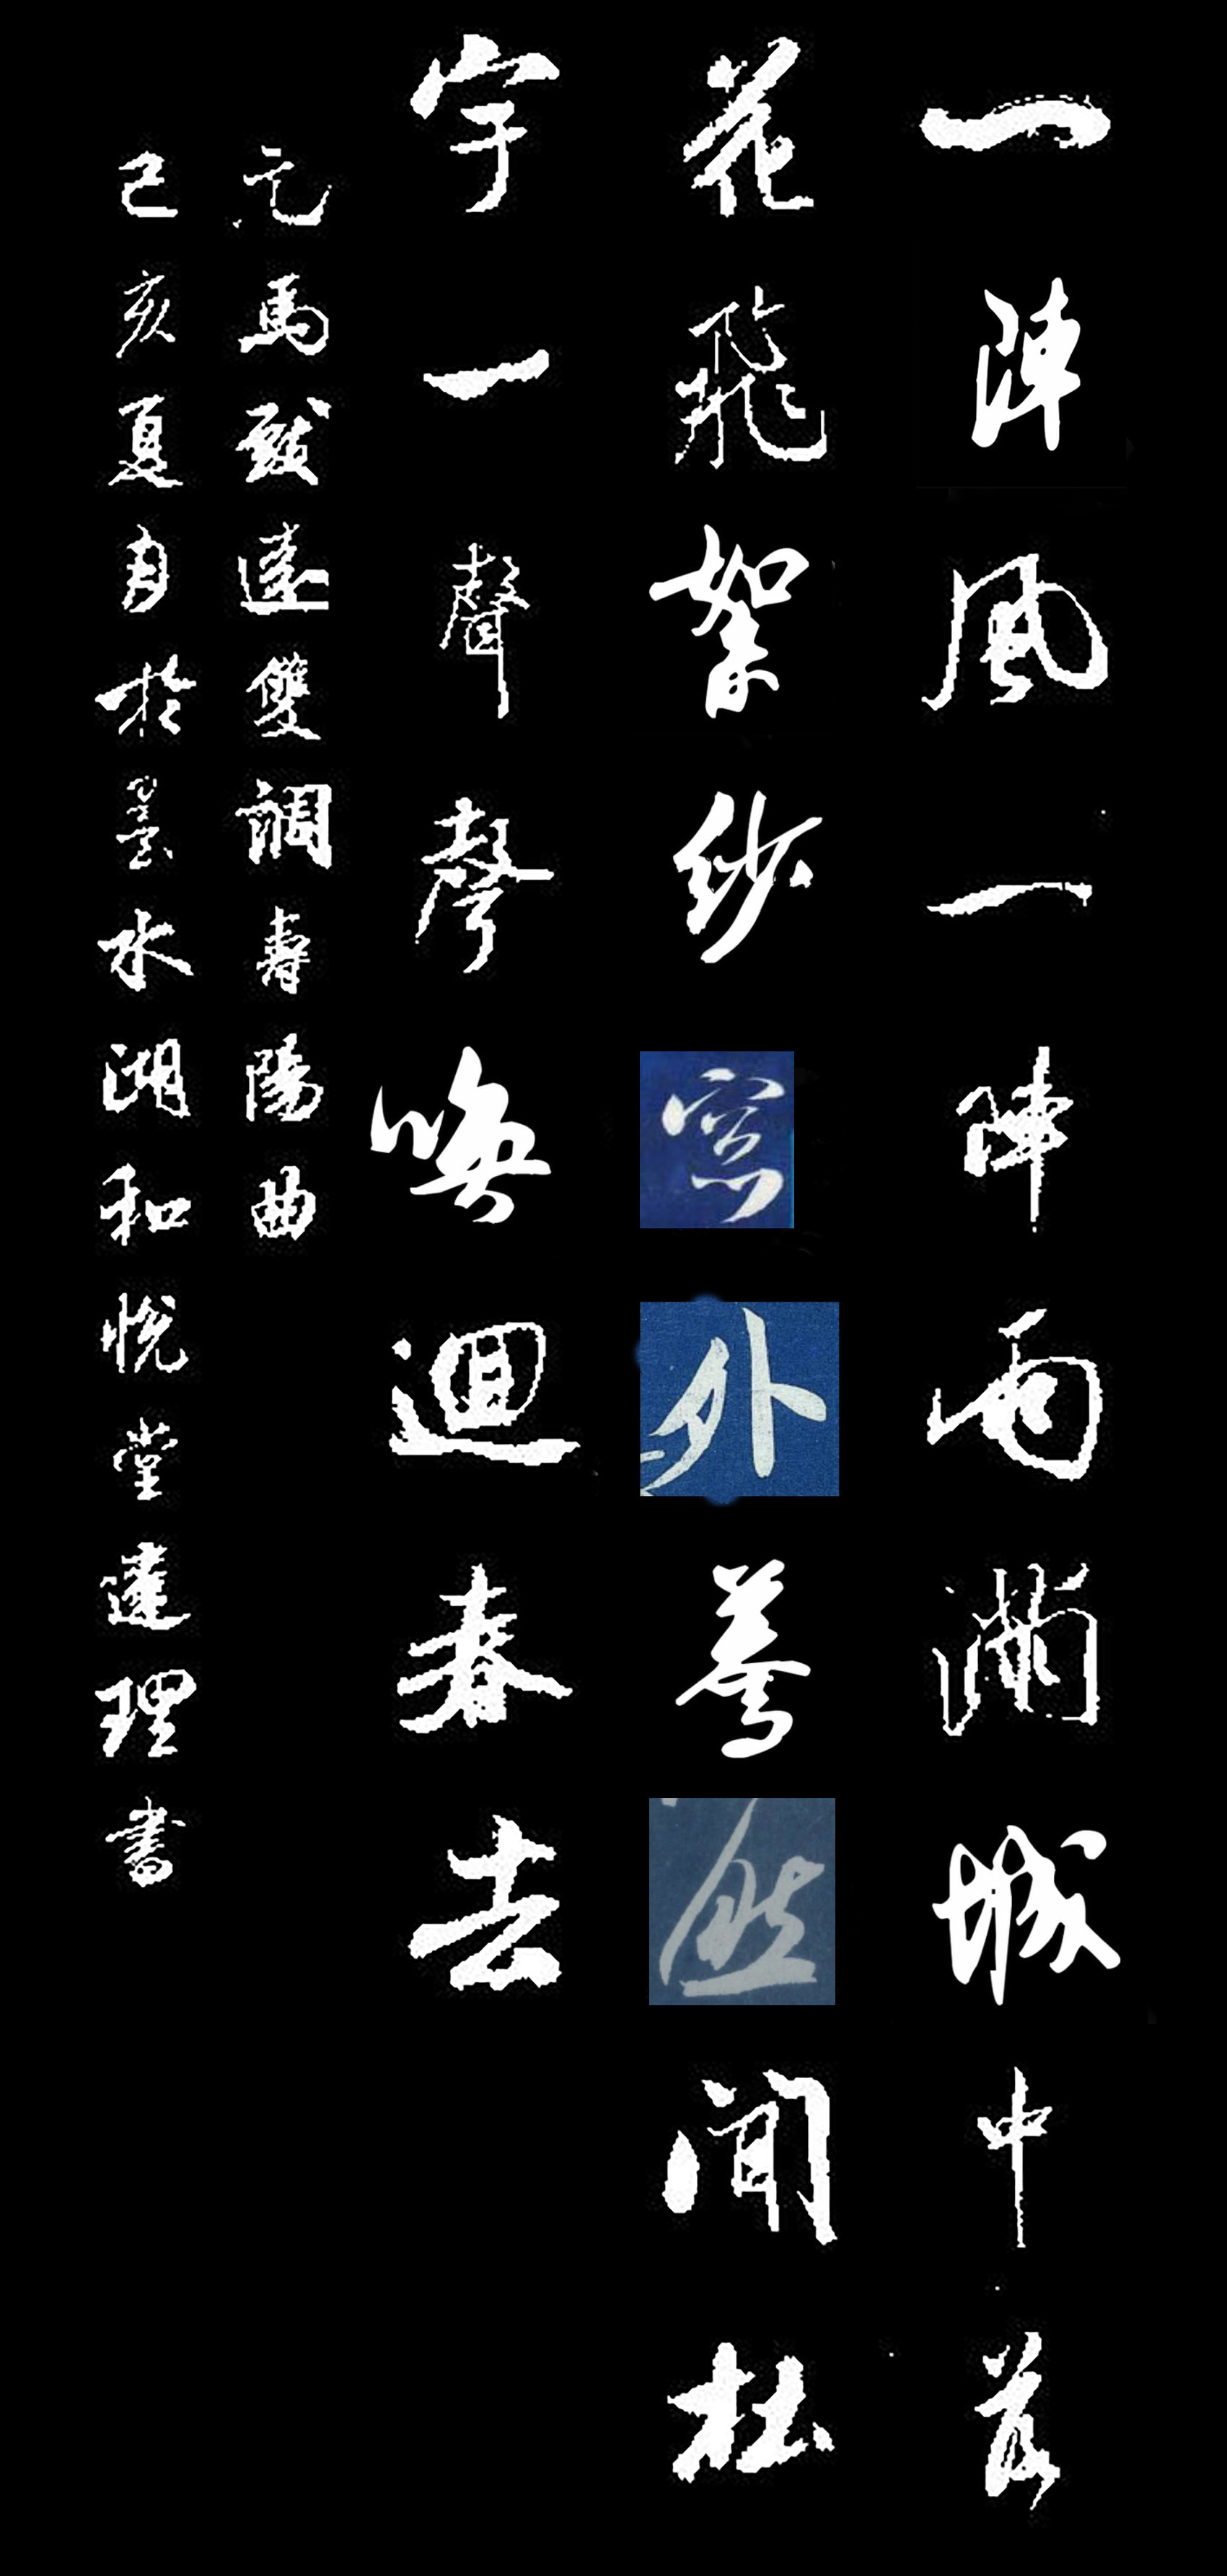 一陣風一陣雨滿城中落
花飛絮紗窓外驀然聞杜
宇一聲聲喚迴春去
元馬致遠雙調壽陽曲
己亥夏月於墨水湖和悅堂達理書